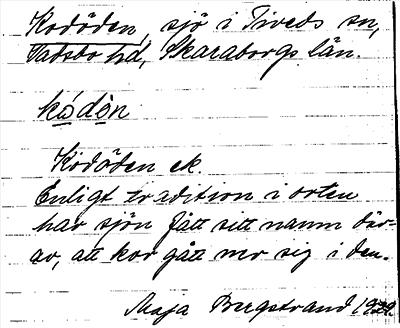 Kodöden, sjö i Tiveds sn,
Vadsbo hd, Skaraborgs län.
kódèn
Kodöden ek.
Enligt tradition i orten
har sjön fått sitt namn där-
av, att kor gått ner sig i den.
Maja Bergstrand 1929.